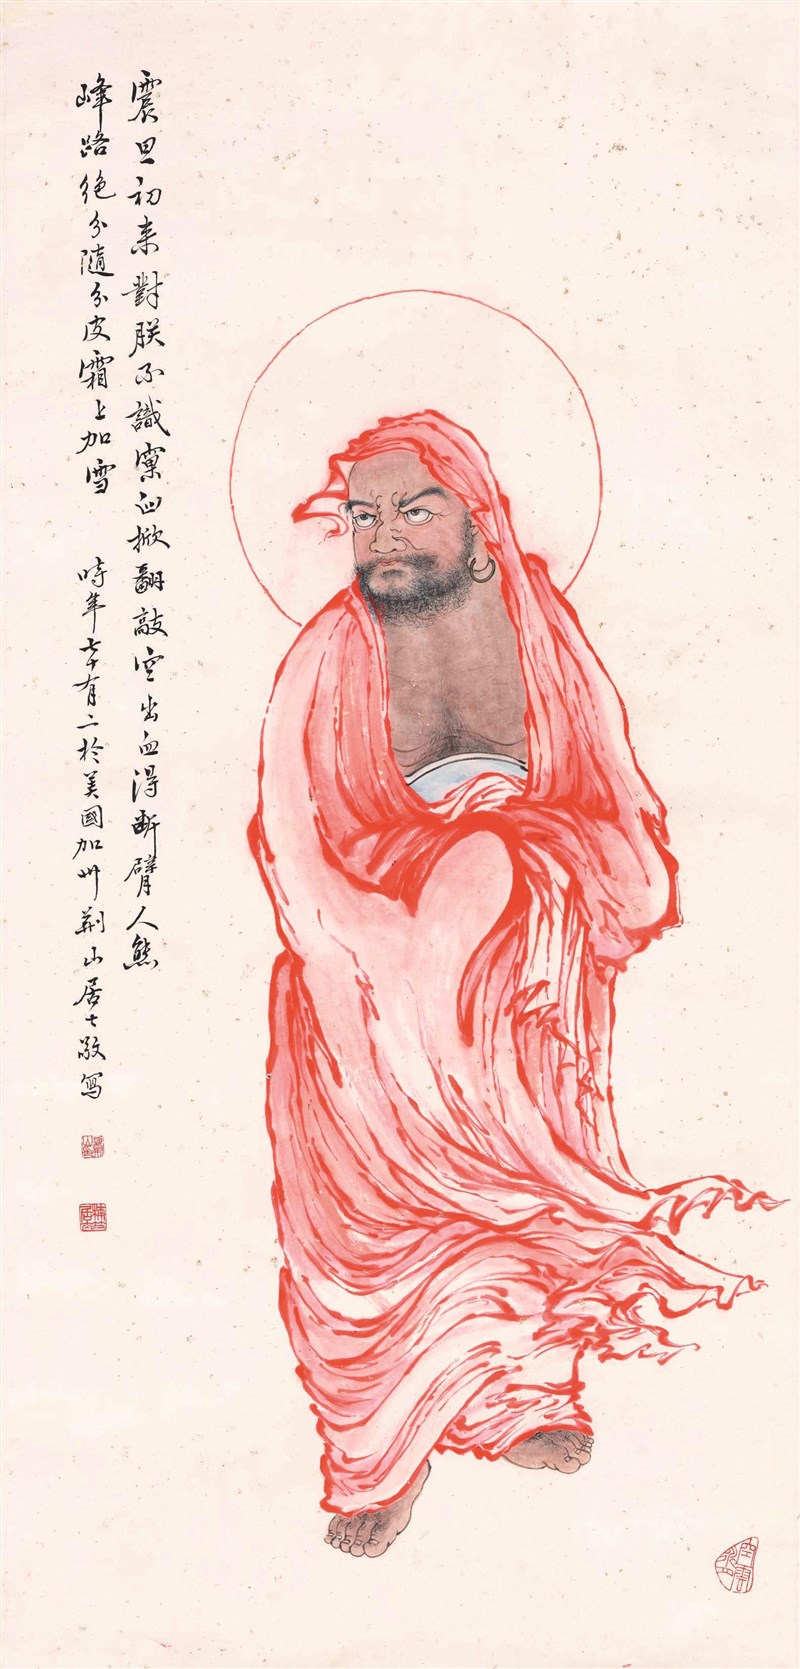 震旦初来對朕不識窠臼掀翻敲空出血得斷臂人熊
峰路絶分隨分皮霜上加雪 時年七十有二於美國加州荆山居士敬寫